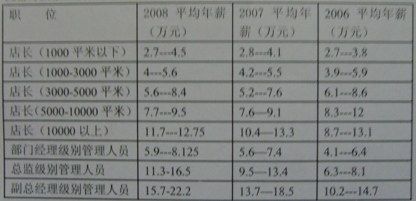 职 位 2008 平均年薪（万元） 2007 平均年薪（万元） 2006 平均年薪（万元）
店长（1000 平米以下） 2.7---4.5 2.8---4.1 2.7---3.8
店长（1000-3000 平米） 4---5.6 4.2---5.5 3.9---5.9
店长（3000-5000 平米） 5.6---8.4 5.2---7.6 6.1---8.6
店长(5000-10000 平米） 7.7---9.5 7.6---9.1 8.3---12
店长（10000 以上） 11.7---12.75 10.4---13.3 8.7---13.1
部门经理级别管理人员 5.9---8.125 5.6---7.4 4.1---6.4
总监级别管理人员 11.3-16.5 9.5---13.4 6.3---8.1
副总经理级别管理人员 15.7-22.2 13.7---18.5 10.2---14.7